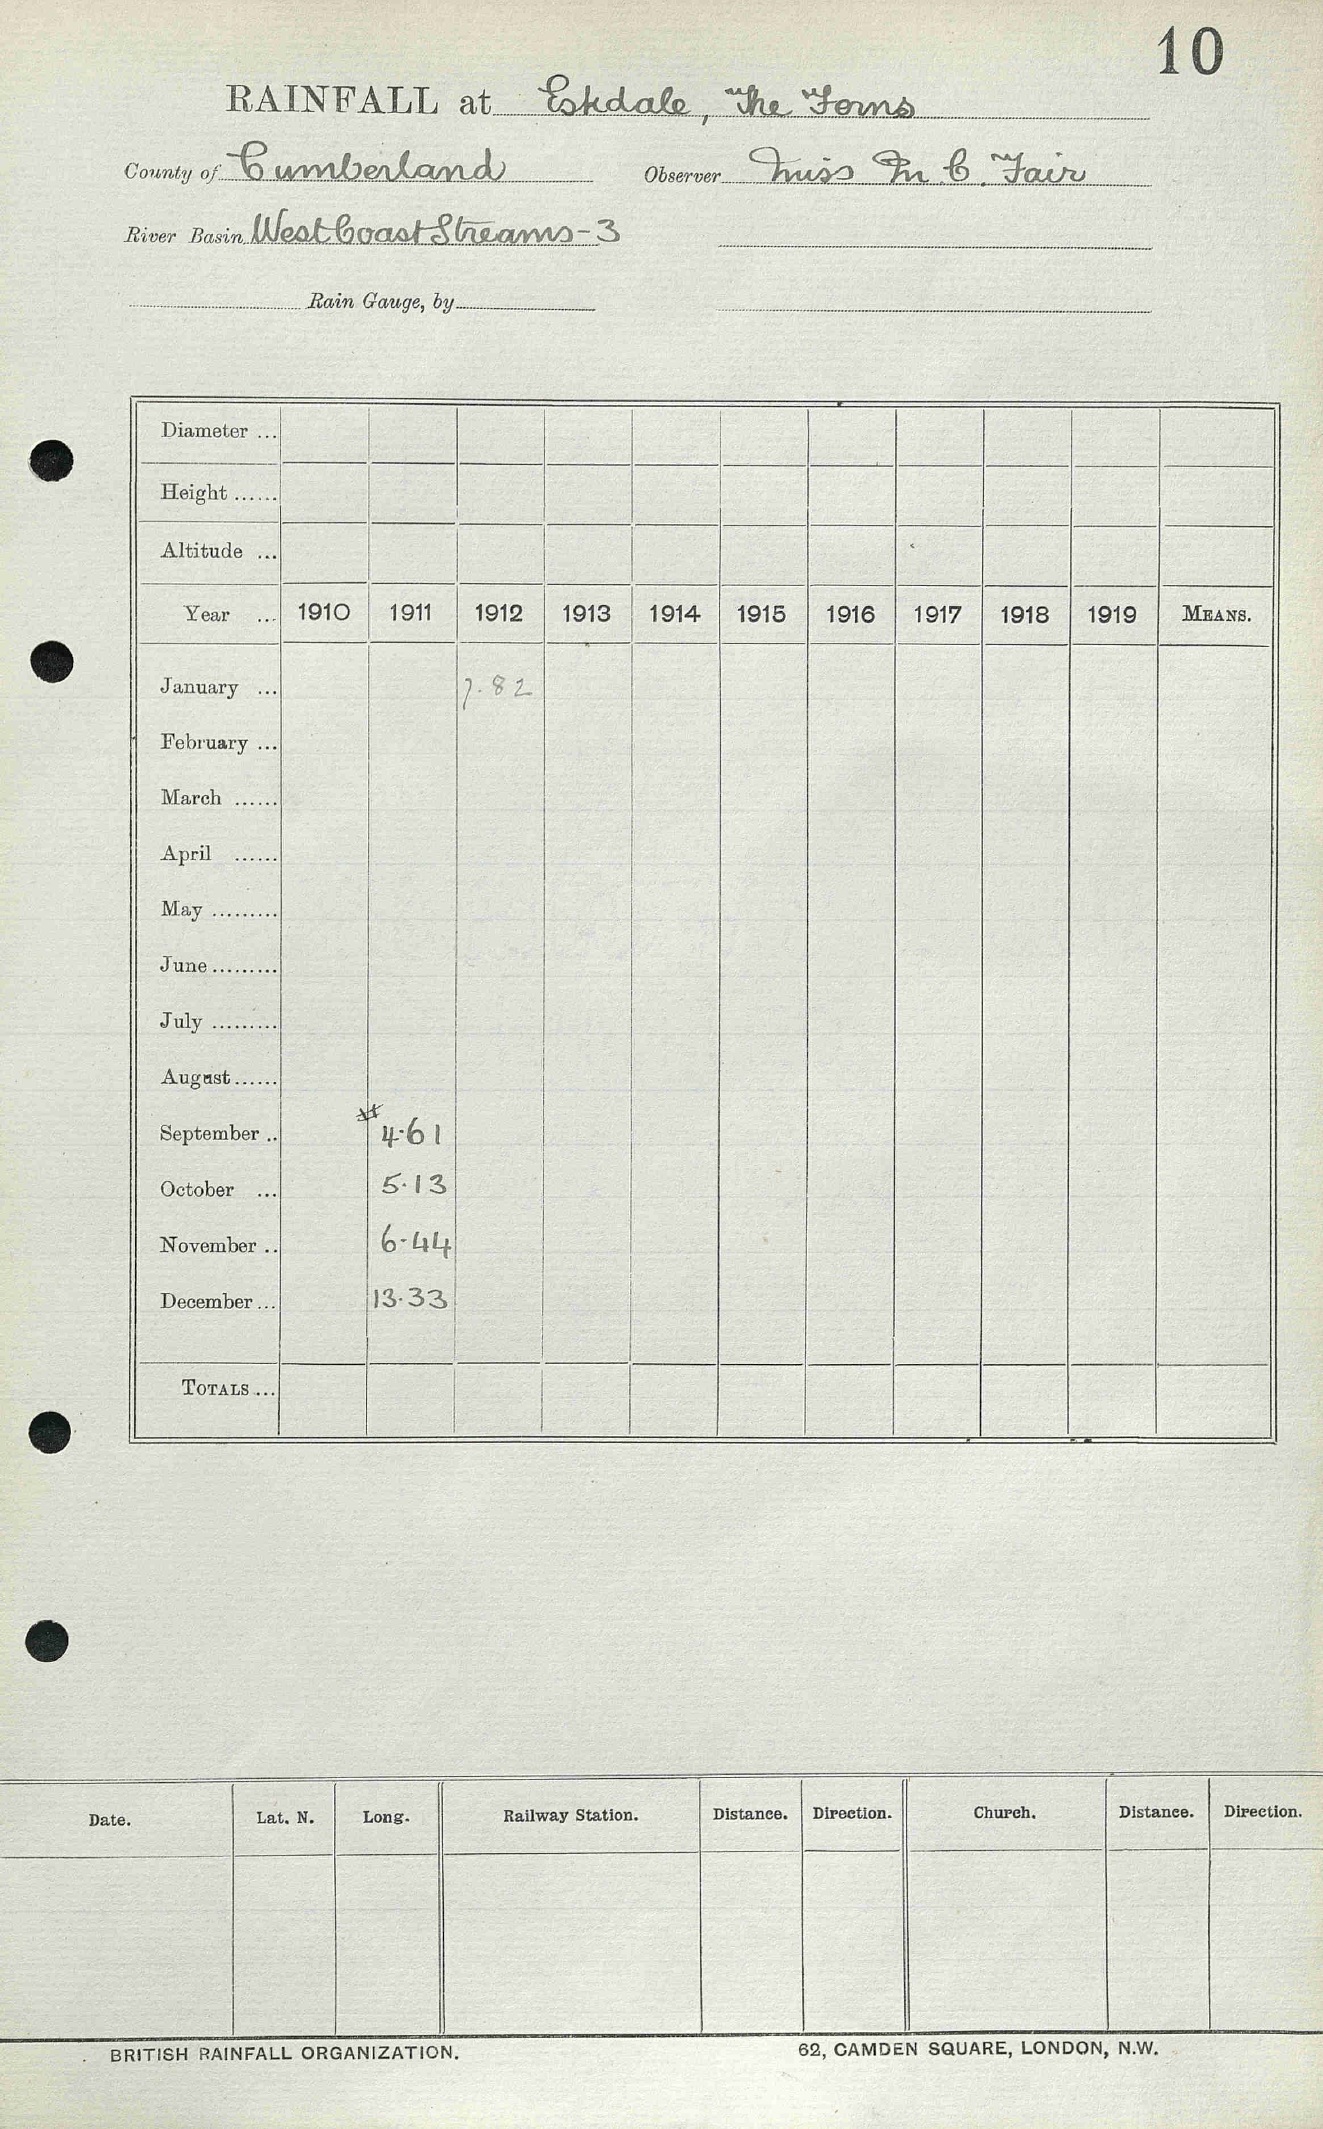 10
RAINFALL at Eskdale, The Ferns
County of Cumberland Observer Miss M C. Fair
River Basin West Coast Streams-3
Rain Gauge, by
Diameter ...
Height ......
Altitude ...
Year ... 1910 1911 1912 1913 1914 1915 1916 1917 1918 1919 MEANS.
January ... 7.82
February ...
March ......
April ......
May .........
June.........
July .........
August......
September .. 4.61
October ... 5.13
November .. 6.44
December... 13.33
TOTALS...
Date. Lat. N. Long. Railway Station. Distance. Direction. Church. Distance. Direction.
BRITISH RAINFALL ORGANIZATION. 62, CAMDEN SQUARE, LONDON, N.W.